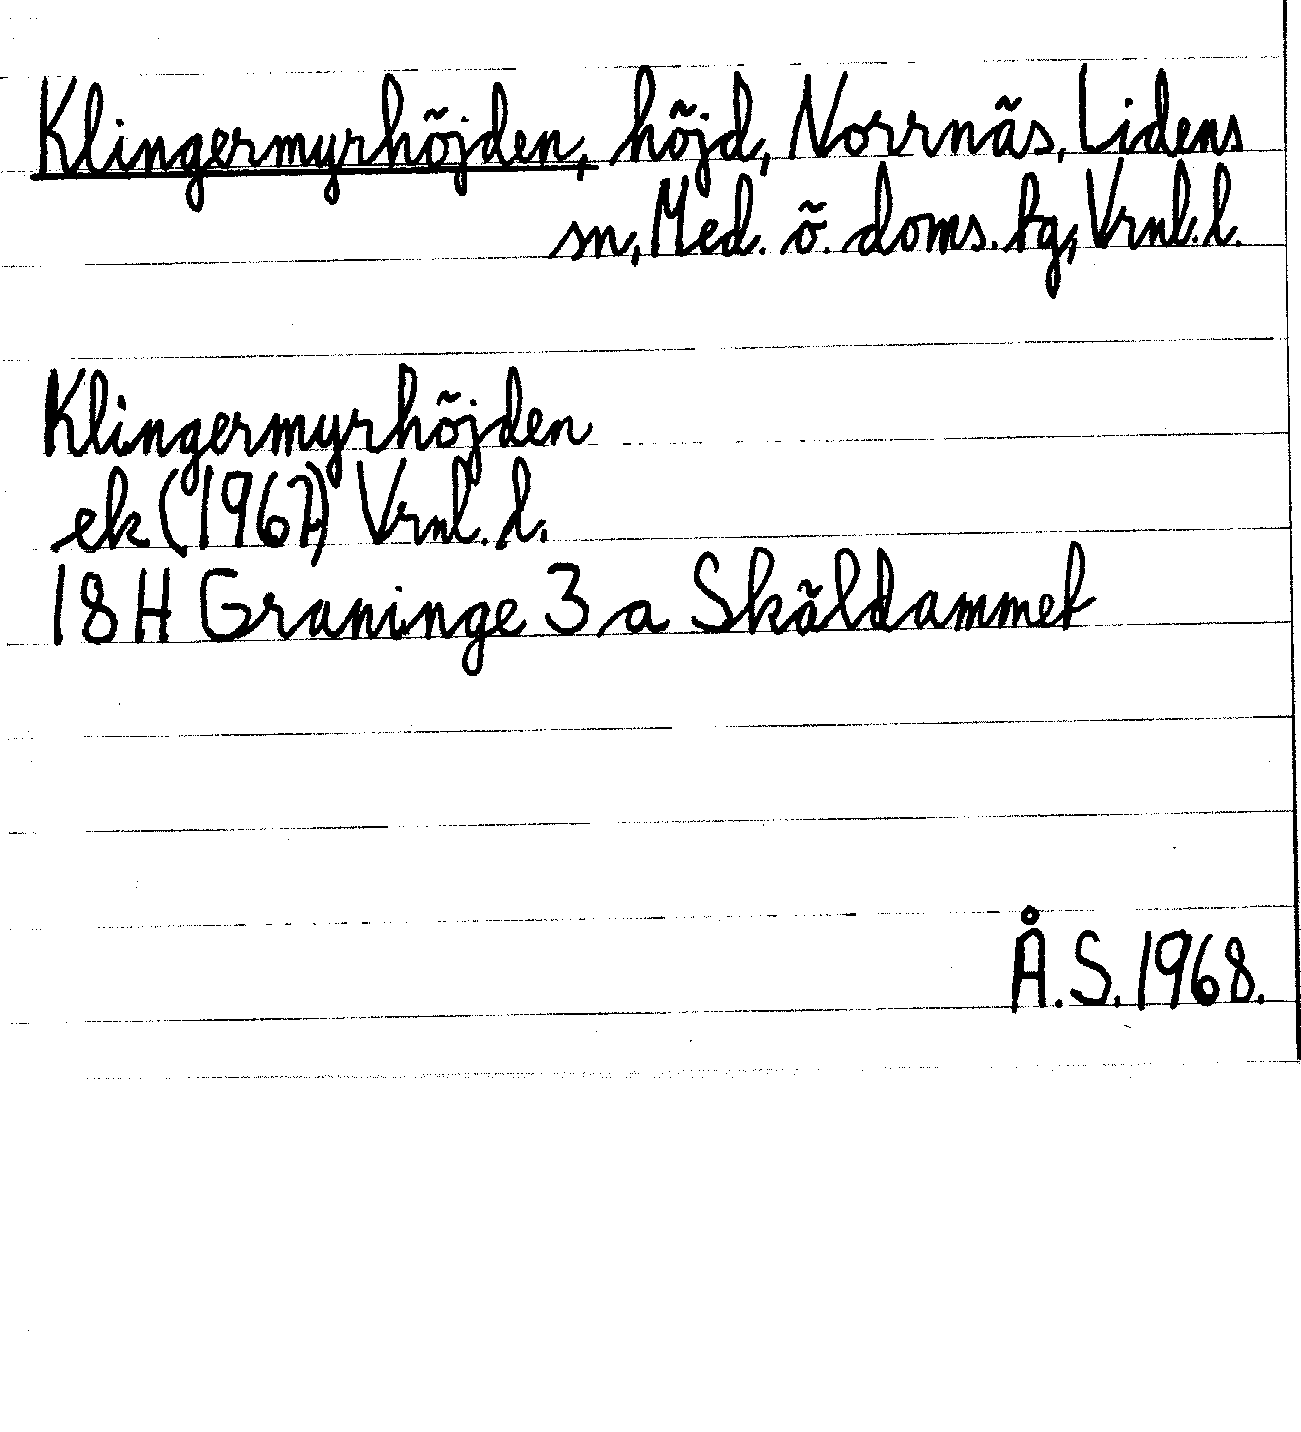 Klingermyrhöjden, höjd, Norrnäs, Lidens
sn, Med. ö. doms. tg, Vrnl. l.
Klingermyrhöjden
ek (1967) Vrnl. l.
18H Graninge 3 a Skäldammet
Å.S. 1968.